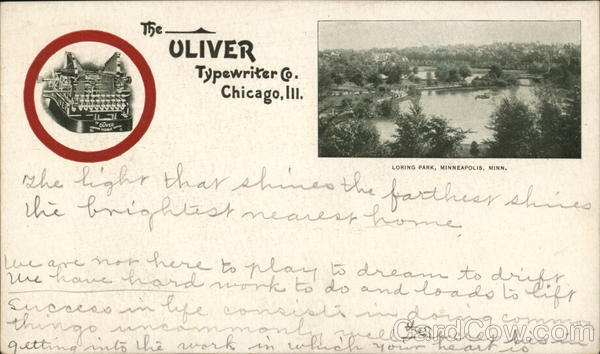 The
OLIVER
Typewriter Co.
Chicago, Ill.
OLIVER
LORING PARK, MINNEAPOLIS, MINN.
The light that shines the farthest shines
the brightest nearest home.
We are not here to play to dream to drift
We have hard work to do and loads to lift
Success in life consists in doing common
things uncommonly well
getting into the work in which your heart is
CardCow.com